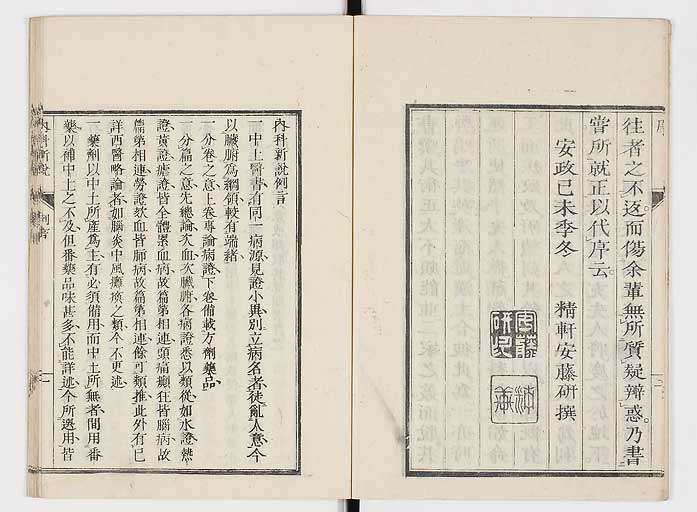 序
往者之不返而傷余輩無所質疑辨惑乃書
嘗所就正以代序云
安政己未季冬
精軒安藤研撰
二
內科新說例言
一中土醫書有同一病源見證小異別立病名者徒亂人意今
以臟腑為綱領較有端緒
一分卷之意上卷專論病證下卷備載方劑藥品
一分篇之意先總論次血次臟腑各病證悉以類從如水證燃
證黃證瘧證皆全體累血病故篇第相連頭痛癲狂皆腦病故
篇第相連勞證欬血皆肺病故篇第相連餘可類推此外有已
詳西醫略論者如腦炎中風癱瘓之類今不更述
一藥劑以中土所產為主有必須備用而中土所無者間用番
藥以補中土之不及但番藥品味甚多不能詳述今所選用皆
內科新說
例言
一